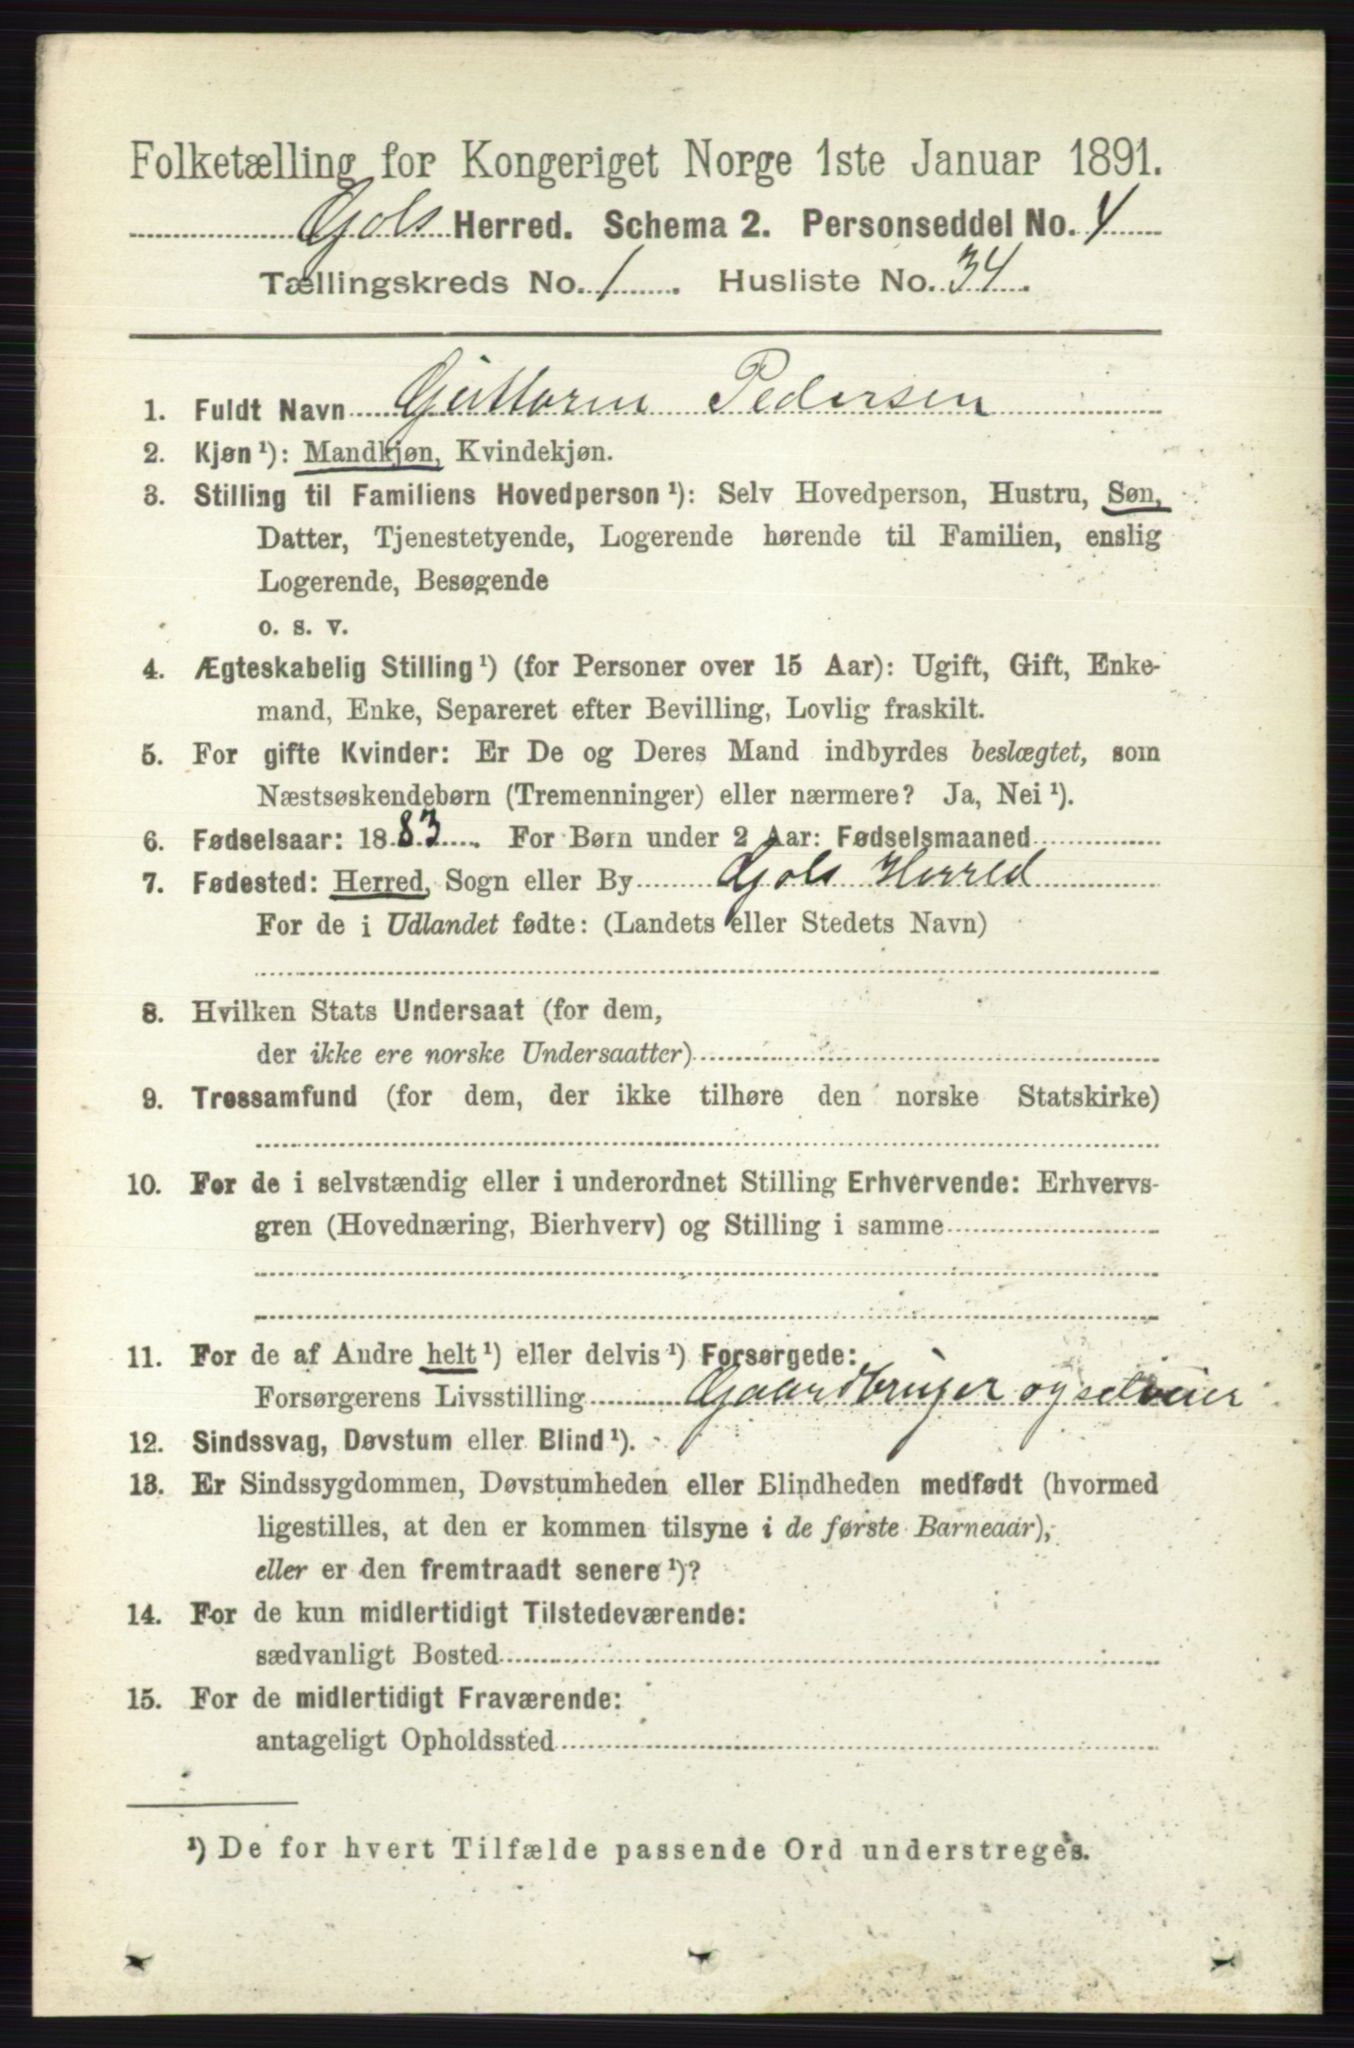 Folketælling for Kongeriget Norge 1ste Januar 1891.
Gols Herred. Schema 2. Personseddel No. 4
Tællingskreds No. 1. Husliste No. 34.
1. Fuldt Navn Guttorm Pedersen
2. Kjøn¹): Mandkjøn, Kvindekjøn.
3. Stilling til Familiens Hovedperson¹): Selv Hovedperson, Hustru, Søn,
Datter, Tjenestetyende, Logerende hørende til Familien, enslig
Logerende, Besøgende
o. s. v.
4. Ægteskabelig Stilling¹) (for Personer over 15 Aar): Ugift, Gift, Enke-
mand, Enke, Separeret efter Bevilling, Lovlig fraskilt.
5. For gifte Kvinder: Er De og Deres Mand indbyrdes beslægtet, som
Næstsøskendebørn (Tremenninger) eller nærmere? Ja, Nei¹).
6. Fødselsaar: 1883. For Børn under 2 Aar: Fødselsmaaned
7. Fødested: Herred, Sogn eller By Gols Herred
For de i Udlandet fødte: (Landets eller Stedets Navn)
8. Hvilken Stats Undersaat (for dem,
der ikke ere norske Undersaatter)
9. Trossamfund (for dem, der ikke tilhøre den norske Statskirke)
10. For de i selvstændig eller i underordnet Stilling Erhvervende: Erhvervs-
gren (Hovednæring, Bierhverv) og Stilling i samme
11. For de af Andre helt¹) eller delvis¹) Forsørgede:
Forsørgerens Livsstilling Gaardbruger og selveier
12. Sindssvag, Døvstum eller Blind¹).
13. Er Sindssygdommen, Døvstumheden eller Blindheden medfødt (hvormed
ligestilles, at den er kommen tilsyne i de første Barneaar),
eller er den fremtraadt senere¹)?
14. For de kun midlertidigt Tilstedeværende:
sædvanligt Bosted
15. For de midlertidigt Fraværende:
antageligt Opholdssted
¹) De for hvert Tilfælde passende Ord understreges.